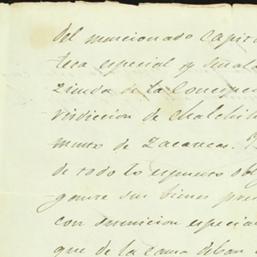 del mencionado capit
teca especial y señala
zienda de la Concepc
risdiccion de Chalchihu
mento de Zacatecas.
de todo lo espuesto ob
gamre sus bienes pres
con sumicion especial
que de la causa deban